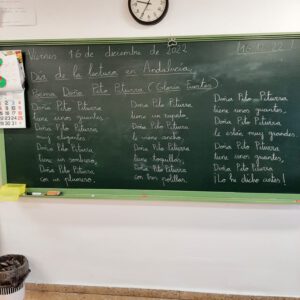 Viernes 16 de diciembre de 2022
16.12.22
Día de la lectura en Andalucía
Poema Doña Pito Piturra (Gloria Fuertes)
Doña Pito Piturra
tiene unos guantes.
Doña Pito Piturra
muy elegantes.
Doña Pito Piturra
tiene un sombrero,
Doña Pito Piturra
con un plumero.
Doña Pito Piturra
tiene un zapato,
Doña Pito Piturra
le viene ancho.
Doña Pito Piturra
tiene toquillas,
Doña Pito Piturra
con tres polillas.
Doña Pito Piturra
tiene unos guantes,
Doña Pito Piturra
le están muy grandes.
Doña Pito Piturra
tiene unos guantes,
Doña Pito Piturra
¡lo he dicho antes!